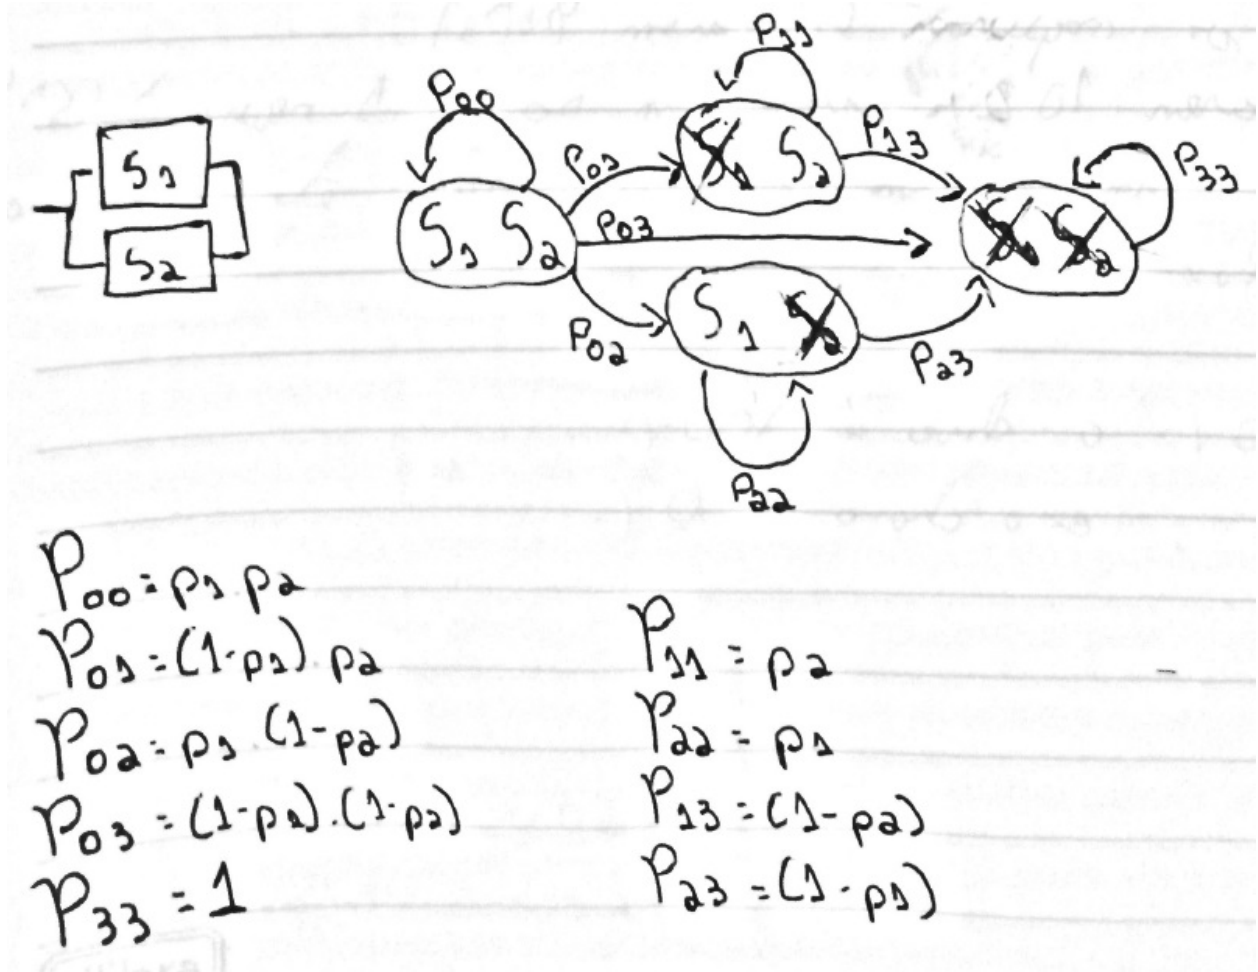 S1
S2
P00
S1 S2
P01
P03
P02
P11
S1 S2
P13
S1 S2
P22
P23
S1 S2
P33
P00 = p1.p2
P01 = (1-p1).p2
P02 = p1.(1-p2)
P03 = (1-p1).(1-p2)
P33 = 1
P11 = p2
P22 = p1
P13 = (1-p2)
P23 = (1-p1)